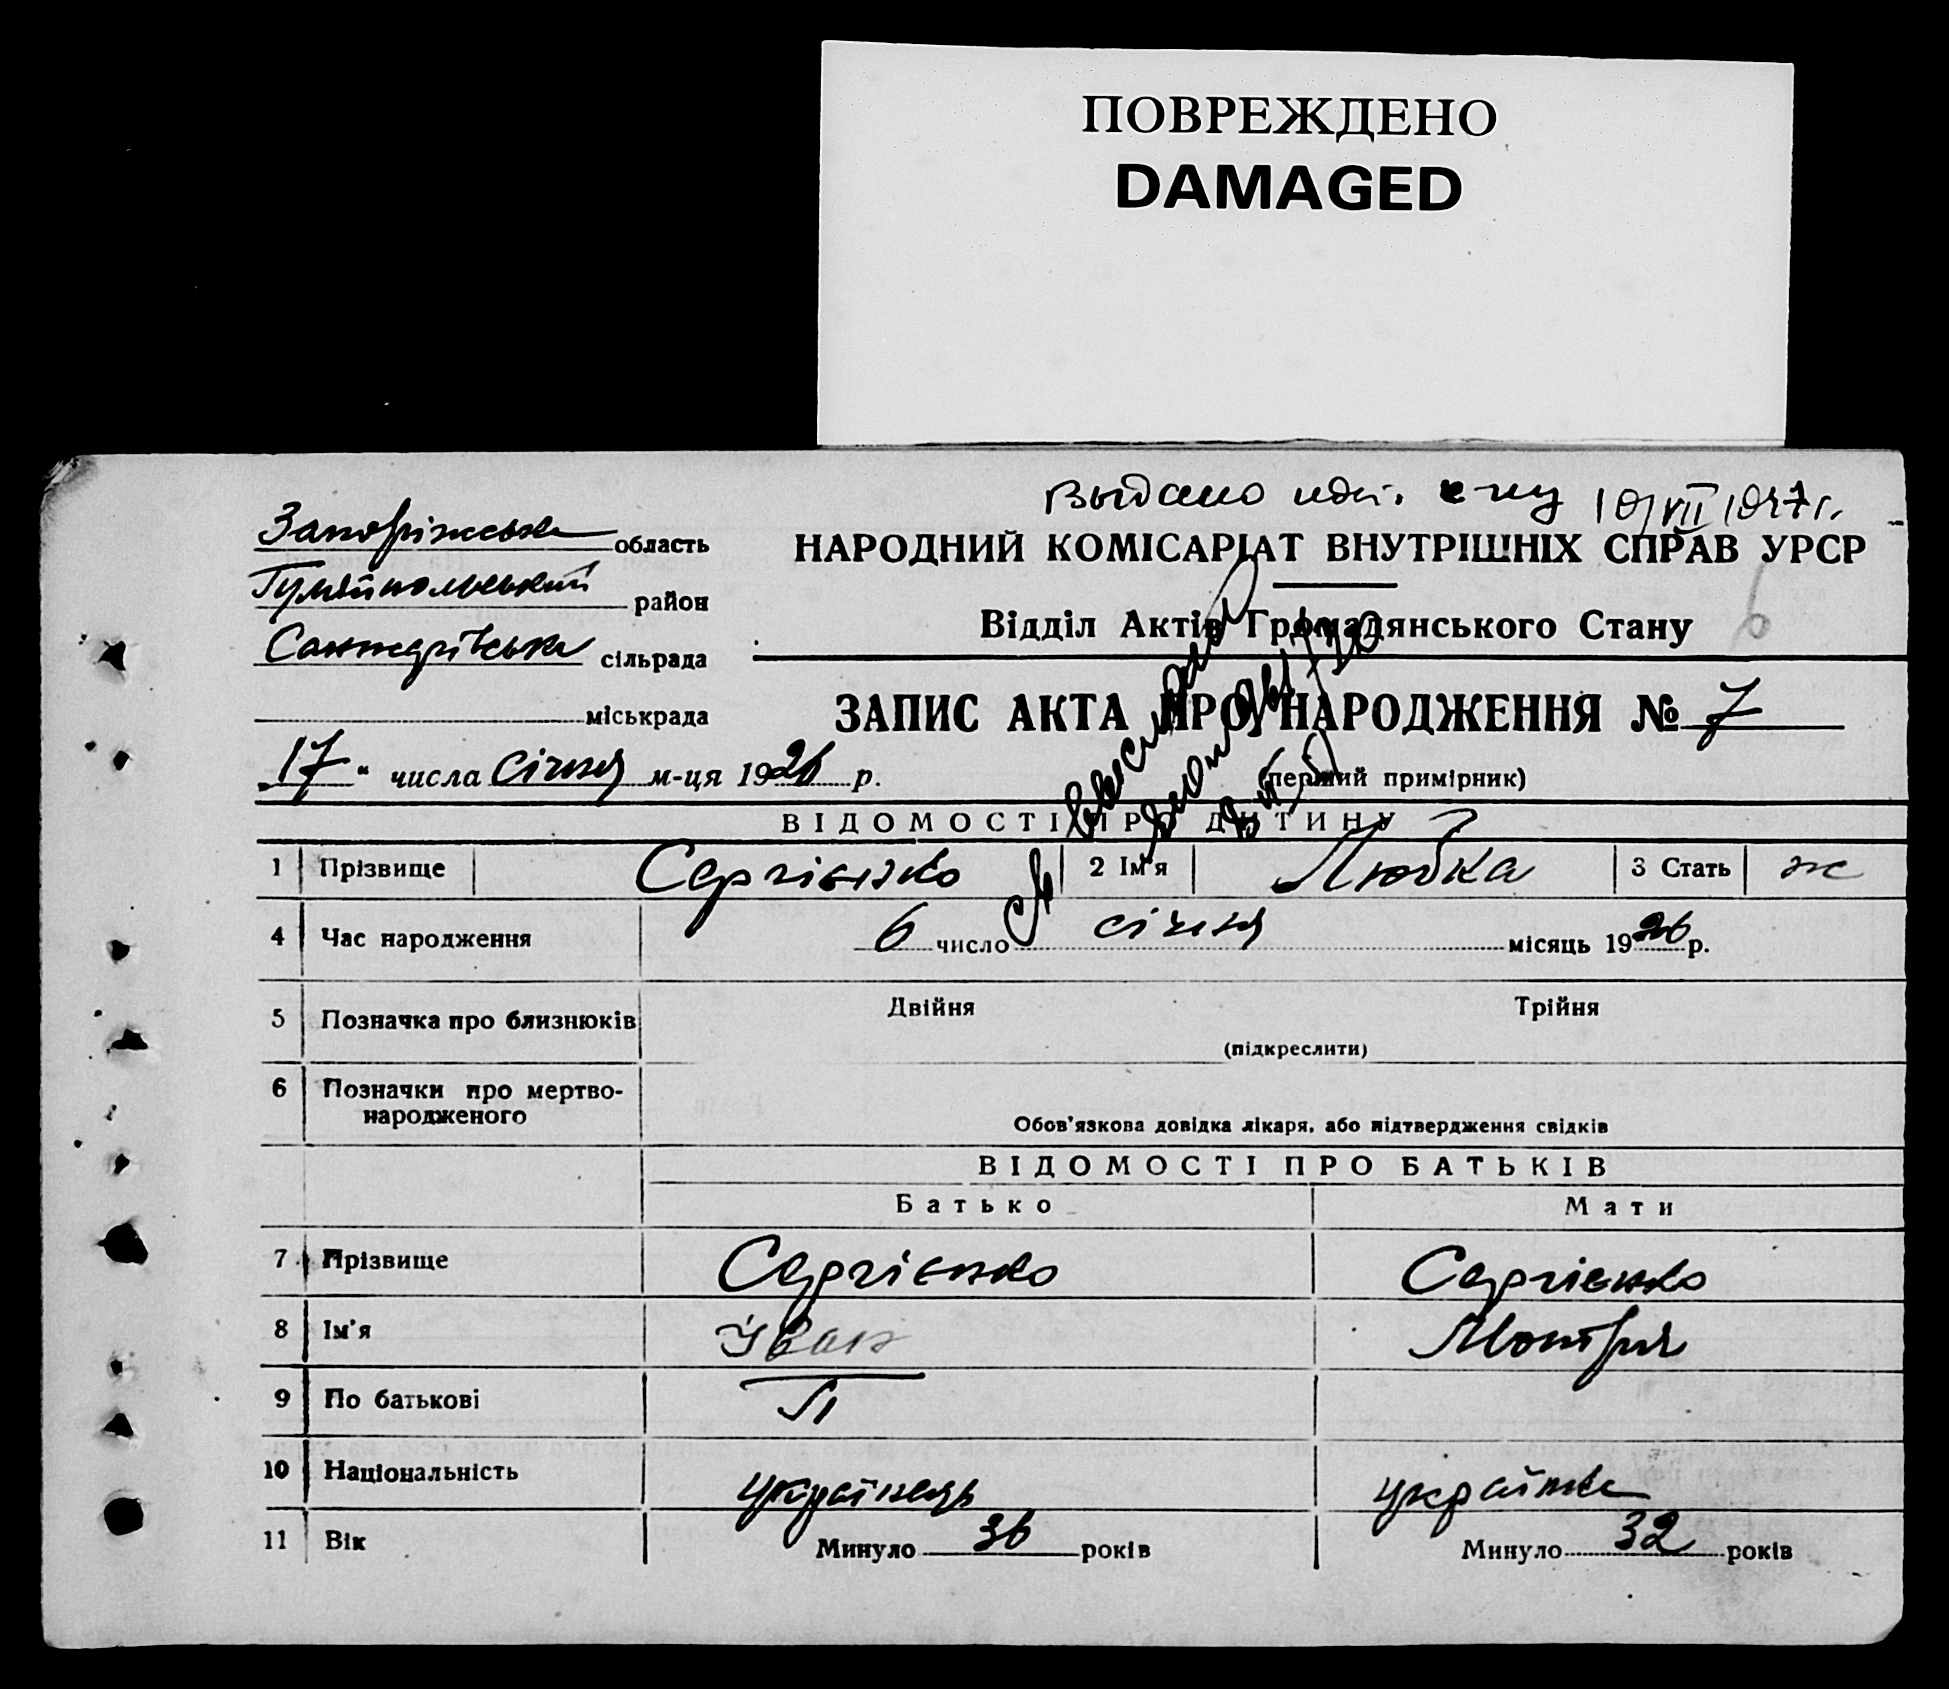 ПОВРЕЖДЕНО
DAMAGED
Выдано 10/VII 1947 г.
Запоріжська область
Гуляйпольський район
сільрада
міськрада
НАРОДНИЙ КОМІСАРІАТ ВНУТРІШНІХ СПРАВ УРСР
Відділ Актів Громадянського Стану
6
ЗАПИС АКТА ПРО НАРОДЖЕННЯ № 7
17 " числа січня м-ця 1926 р.
(перший примірник)
ВІДОМОСТІ ПРО ДИТИНУ
1 Прізвище Сергієнко 2 Ім'я Любка 3 Стать ж
4 Час народження 6 число січня місяць 1926 р.
5 Позначка про близнюків Двійня Трійня
(підкреслити)
6 Позначки про мертво-
народженого
Обов'язкова довідка лікаря, або підтвердження свідків
ВІДОМОСТІ ПРО БАТЬКІВ
Батько Мати
7 Прізвище Сергієнко Сергієнко
8 Ім'я Іван Мотря
9 По батькові П
10 Національність українець українка
11 Вік Минуло 36 років Минуло 32 років